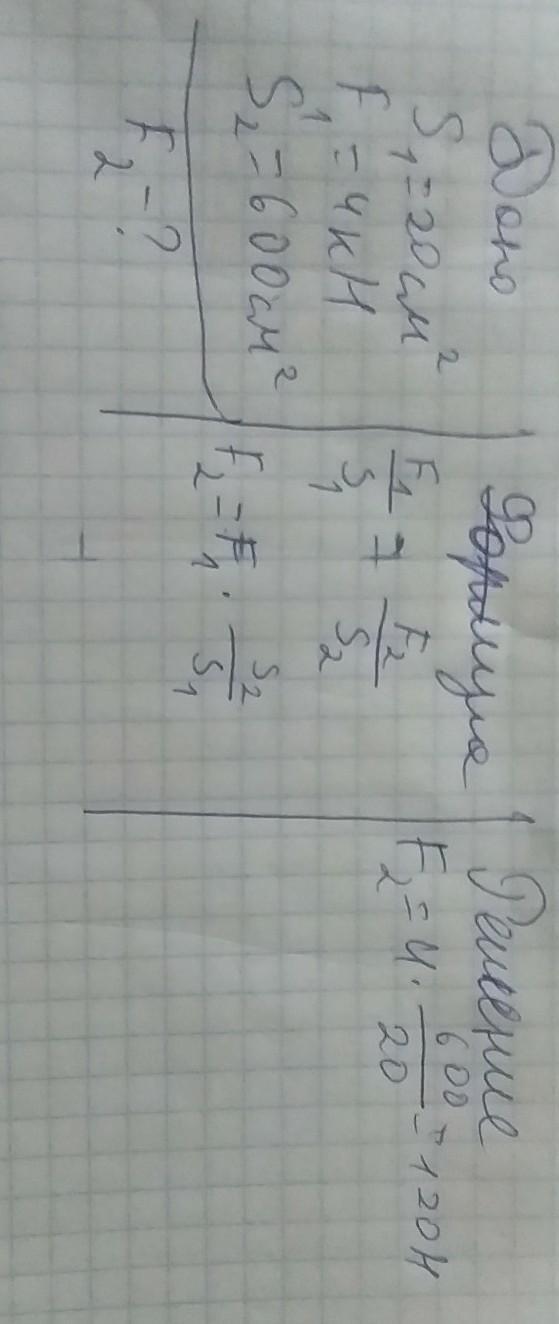 Дано
S₁ = 20 см²
F₁ = 4 кН
S₂ = 600 см²
F₂ - ?
Формула
F₁/S₁ = F₂/S₂
F₂ = F₁ · S₂/S₁
Решение
F₂ = 4 · 600/20 = 120 Н